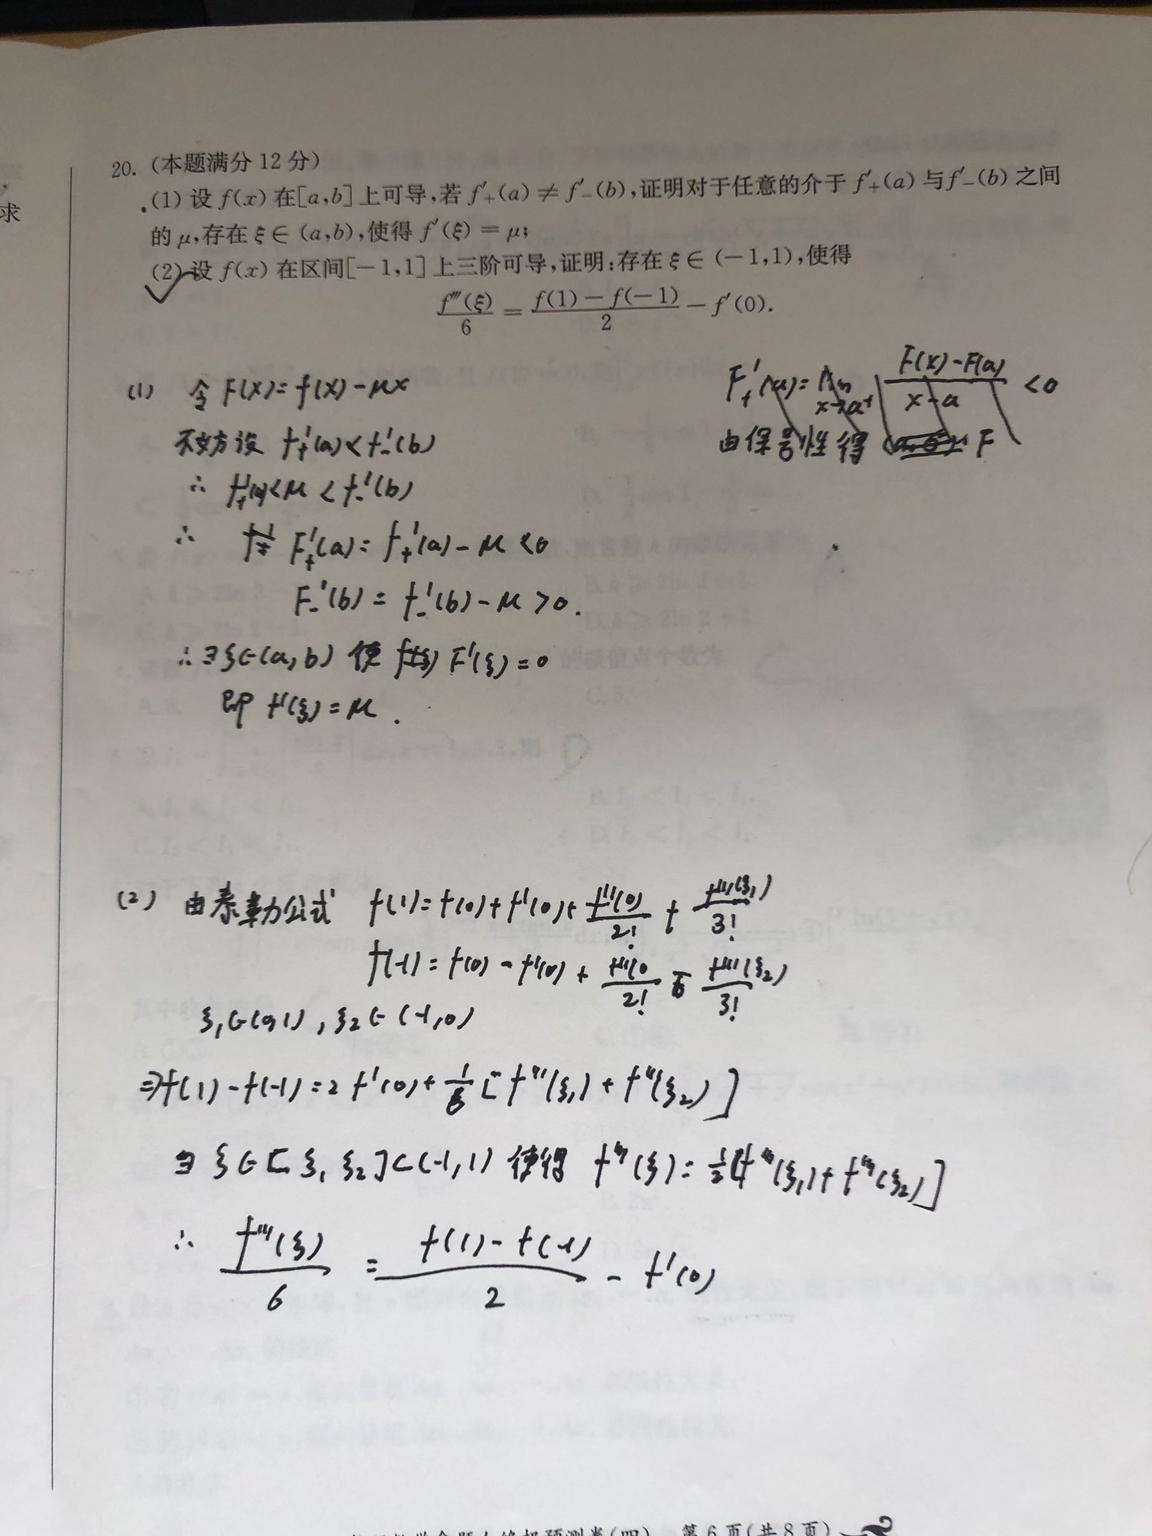 求
20. (本题满分 12 分)
(1) 设 f(x) 在[a,b]上可导,若 f′₊(a) ≠ f′₋(b),证明对于任意的介于 f′₊(a) 与 f′₋(b) 之间
的 μ,存在 ξ ∈ (a,b),使得 f′(ξ) = μ;
(2) 设 f(x) 在区间[−1,1]上三阶可导,证明:存在 ξ ∈ (−1,1),使得
f‴(ξ)/6 = (f(1) − f(−1))/2 − f′(0).
(1) 令 F(x)= f(x)-μx
不妨设 f₊′(a)<f₋′(b)
∴ f₊′(a)<μ<f₋′(b)
∴ F₊′(a)= f₊′(a)-μ<0
F₋′(b)= f₋′(b)-μ>0.
∴∃ξ∈(a,b) 使 F′(ξ)=0
即 f′(ξ)=μ.
F₊′(a)= lim x→a⁺ (F(x)-F(a))/(x-a) <0
由保号性得 F
(2) 由泰勒公式 f(1)=f(0)+f′(0)+f″(0)/2!+f‴(ξ₁)/3!
f(-1)=f(0)-f′(0)+f″(0)/2!-f‴(ξ₂)/3!
ξ₁∈(0,1),ξ₂∈(-1,0)
⇒f(1)-f(-1)=2f′(0)+1/6[f‴(ξ₁)+f‴(ξ₂)]
∃ξ∈[ξ₁,ξ₂]⊂(-1,1) 使得 f‴(ξ)=1/2[f‴(ξ₁)+f‴(ξ₂)]
∴ f‴(ξ)/6 = (f(1)-f(-1))/2 - f′(0)
(四) 第6页(共8页)